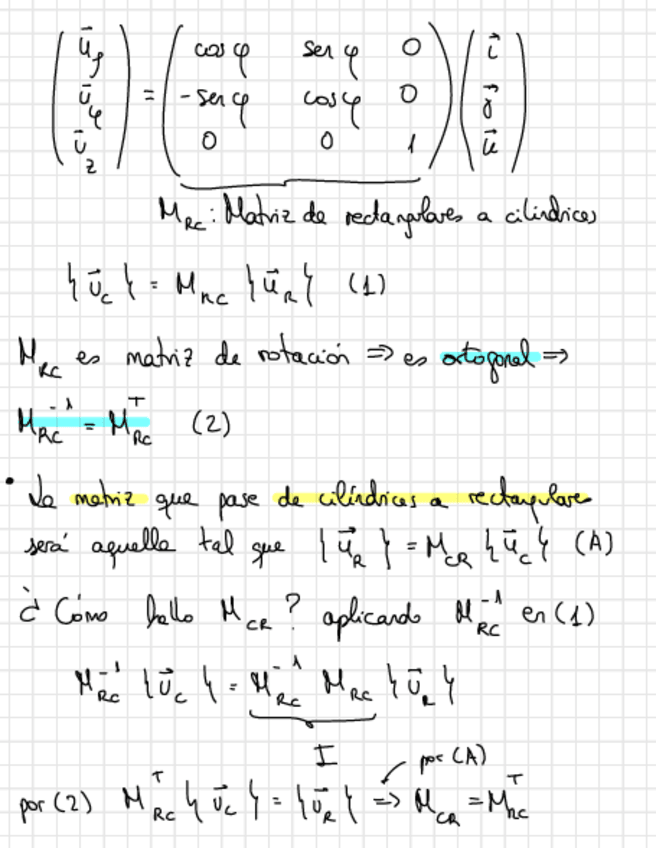 ( u⃗ρ ) = ( cos φ   sen φ   0 ) ( i⃗ )
( u⃗φ )   ( -sen φ   cos φ   0 ) ( j⃗ )
( u⃗z )   ( 0   0   1 ) ( u⃗ )
M_RC : Matriz de rectangulares a cilíndrices
{u⃗_C} = M_RC {u⃗_R} (1)
M_RC es matriz de rotación ⇒ es ortogonal ⇒
M_RC^-1 = M_RC^T (2)
• La matriz que pase de cilíndrices a rectangulares
será aquella tal que {u⃗_R} = M_CR {u⃗_C} (A)
¿Cómo hallo M_CR? aplicando M_RC^-1 en (1)
M_RC^-1 {u⃗_C} = M_RC^-1 M_RC {u⃗_R}
I
por (A)
por (2) M_RC^T {u⃗_C} = {u⃗_R} ⇒ M_CR = M_RC^T